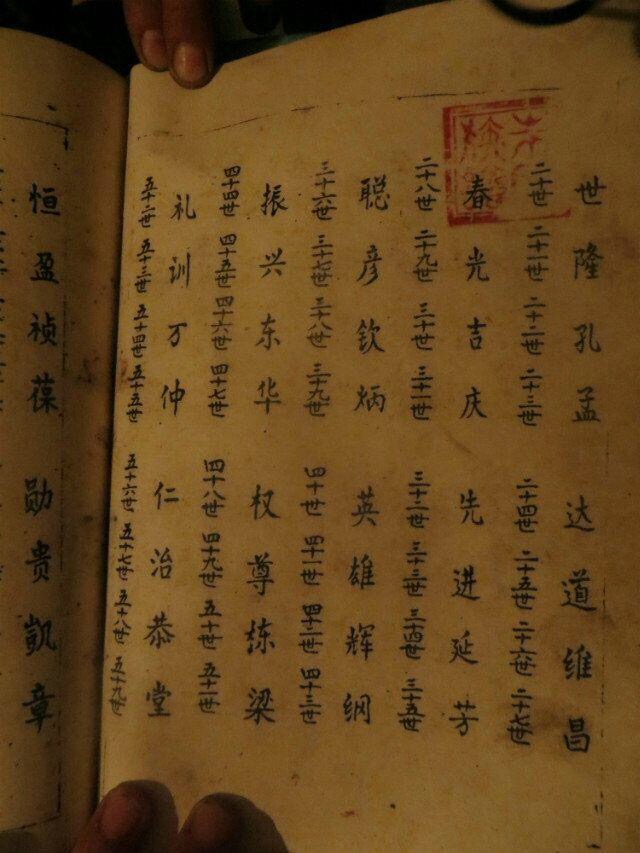 世隆孔孟 达道维昌
二十世 二十一世 二十二世 二十三世 二十四世 二十五世 二十六世 二十七世
春光吉庆 先进延芳
二十八世 二十九世 三十世 三十一世 三十二世 三十三世 三十四世 三十五世
聪彦钦炳 英雄辉纲
三十六世 三十七世 三十八世 三十九世 四十世 四十一世 四十二世 四十三世
振兴东华 权尊栋梁
四十四世 四十五世 四十六世 四十七世 四十八世 四十九世 五十世 五十一世
礼训万仲 仁治恭堂
五十二世 五十三世 五十四世 五十五世 五十六世 五十七世 五十八世 五十九世
恒盈祯葆 勋贵凯章